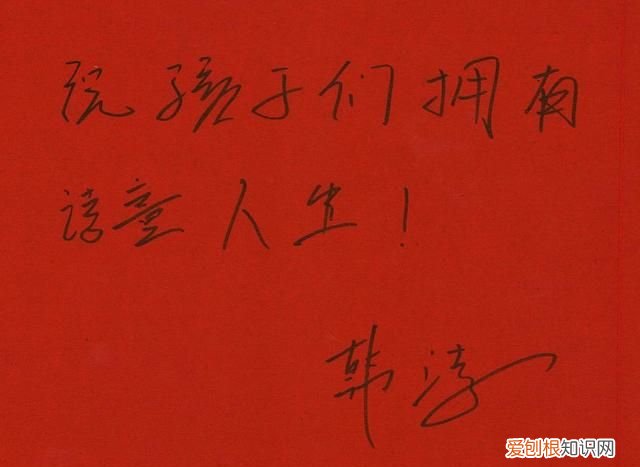 祝孩子们拥有
诗意人生!
韩
爱刨根知识网